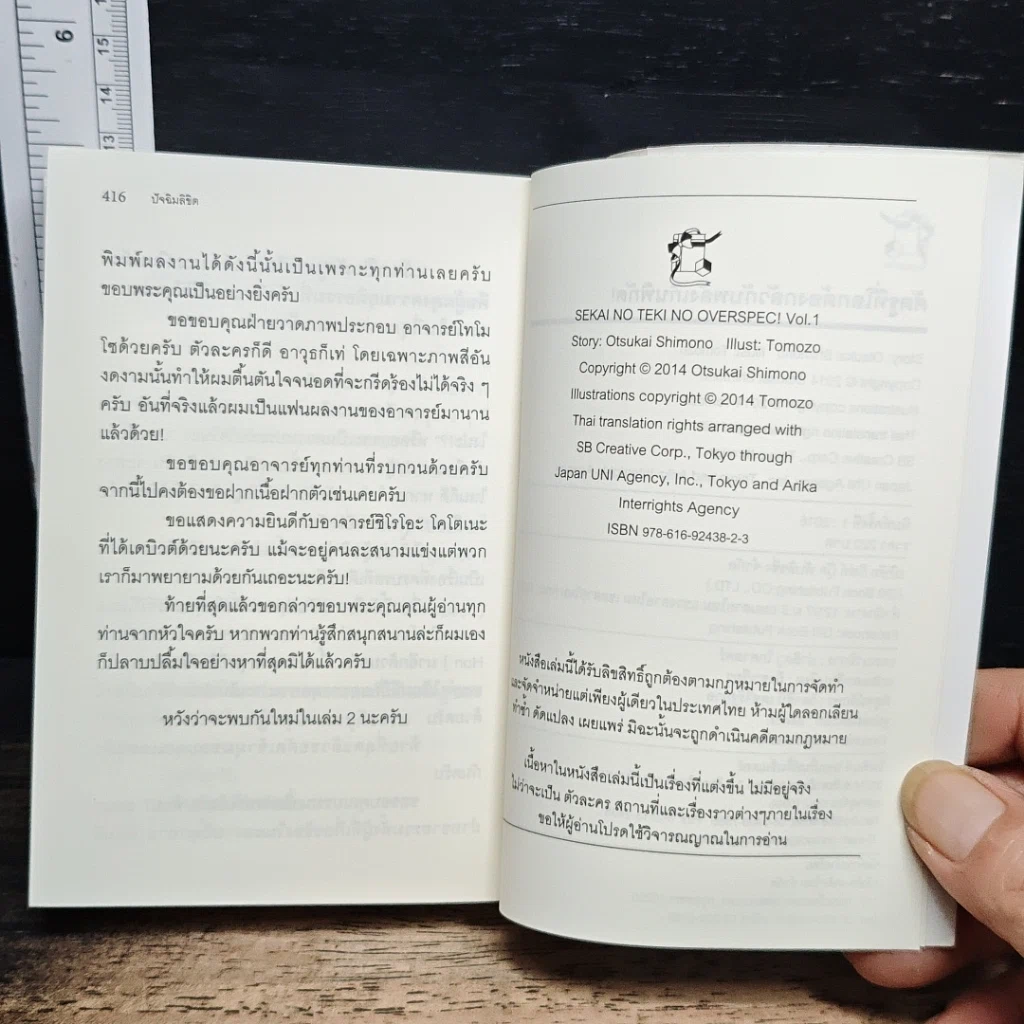 6
15
14
13
416 ปัจฉิมลิขิต
พิมพ์ผลงานได้ดังนี้นั้นเป็นเพราะทุกท่านเลยครับ
ขอบพระคุณเป็นอย่างยิ่งครับ
ขอขอบคุณฝ่ายวาดภาพประกอบ อาจารย์โทโม
โซด้วยครับ ตัวละครก็ดี อาวุธก็เท่ โดยเฉพาะภาพสีอัน
งดงามนั้นทำให้ผมตื่นตันใจจนอดที่จะกรีดร้องไม่ได้จริง ๆ
ครับ อันที่จริงแล้วผมเป็นแฟนผลงานของอาจารย์มานาน
แล้วด้วย!
ขอขอบคุณอาจารย์ทุกท่านที่รบกวนด้วยครับ
จากนี้ไปคงต้องขอฝากเนื้อฝากตัวเช่นเคยครับ
ขอแสดงความยินดีกับอาจารย์ชิโรโอะ โคโตเนะ
ที่ได้เดบิวต์ด้วยนะครับ แม้จะอยู่คนละสนามแข่งแต่พวก
เราก็มาพยายามด้วยกันเถอะนะครับ!
ท้ายที่สุดแล้วขอกล่าวขอบพระคุณคุณผู้อ่านทุก
ท่านจากหัวใจครับ หากพวกท่านรู้สึกสนุกสนานล่ะก็ผมเอง
ก็ปลาบปลื้มใจอย่างหาที่สุดมิได้แล้วครับ
หวังว่าจะพบกันใหม่ในเล่ม 2 นะครับ
SEKAI NO TEKI NO OVERSPEC! Vol.1
Story: Otsukai Shimono Illust: Tomozo
Copyright © 2014 Otsukai Shimono
Illustrations copyright © 2014 Tomozo
Thai translation rights arranged with
SB Creative Corp., Tokyo through
Japan UNI Agency, Inc., Tokyo and Arika
Interrights Agency
ISBN 978-616-92438-2-3
หนังสือเล่มนี้ได้รับลิขสิทธิ์ถูกต้องตามกฎหมายในการจัดทำ
และจัดจำหน่ายแต่เพียงผู้เดียวในประเทศไทย ห้ามผู้ใดลอกเลียน
ทำซ้ำ ดัดแปลง เผยแพร่ มิฉะนั้นจะถูกดำเนินคดีตามกฎหมาย
เนื้อหาในหนังสือเล่มนี้เป็นเรื่องที่แต่งขึ้น ไม่มีอยู่จริง
ไม่ว่าจะเป็น ตัวละคร สถานที่และเรื่องราวต่างๆภายในเรื่อง
ขอให้ผู้อ่านโปรดใช้วิจารณญาณในการอ่าน